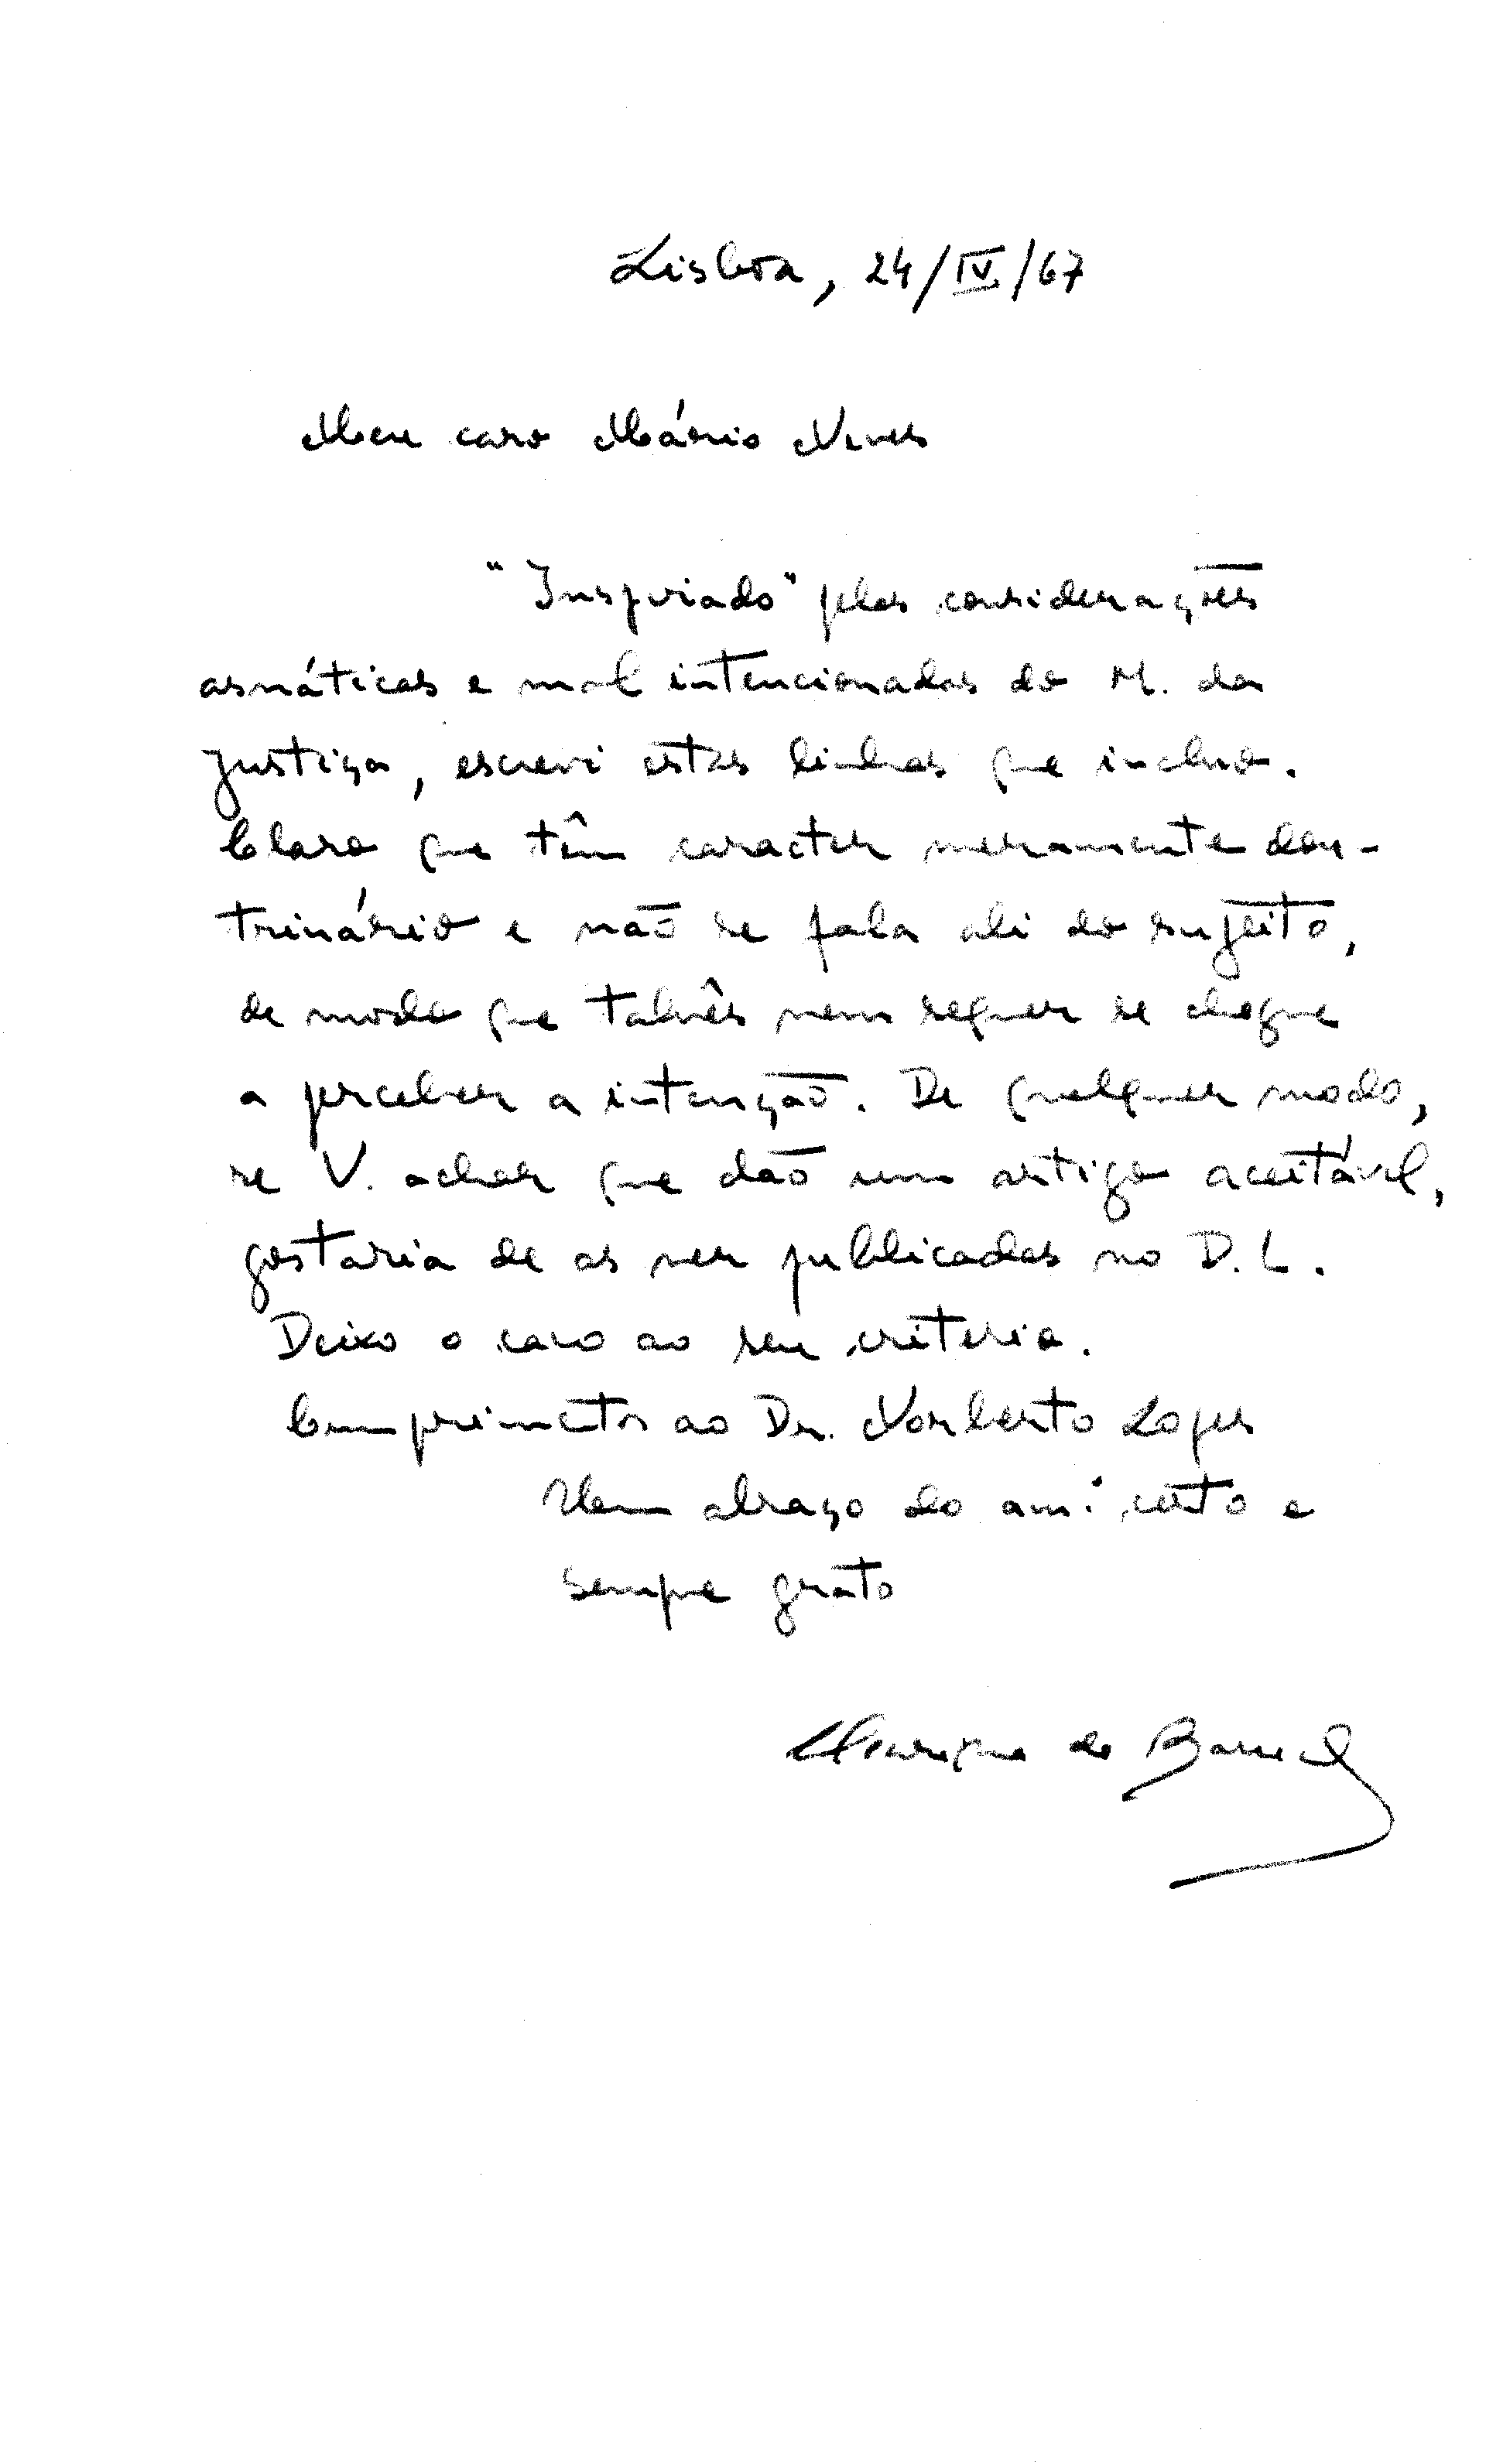 Lisboa, 24/IV/67
Meu caro Mário Neves
"Inspirado" pelas considerações
asnáticas e mal intencionadas do M. da
Justiça, escrevi estas linhas que incluo.
Claro que têm caracter meramente dou-
trinário e não se fala ali do sujeito,
de modo que talvês nem sequer se chegue
a perceber a intenção. De qualquer modo,
se V. achar que dão um artigo aceitável,
gostaria de as ver publicadas no D. L.
Deixo o caso ao seu critério.
Cumprimentos ao Dr. Norberto Lopes
Um abraço do am.º certo e
sempre grato
Henrique de Barros